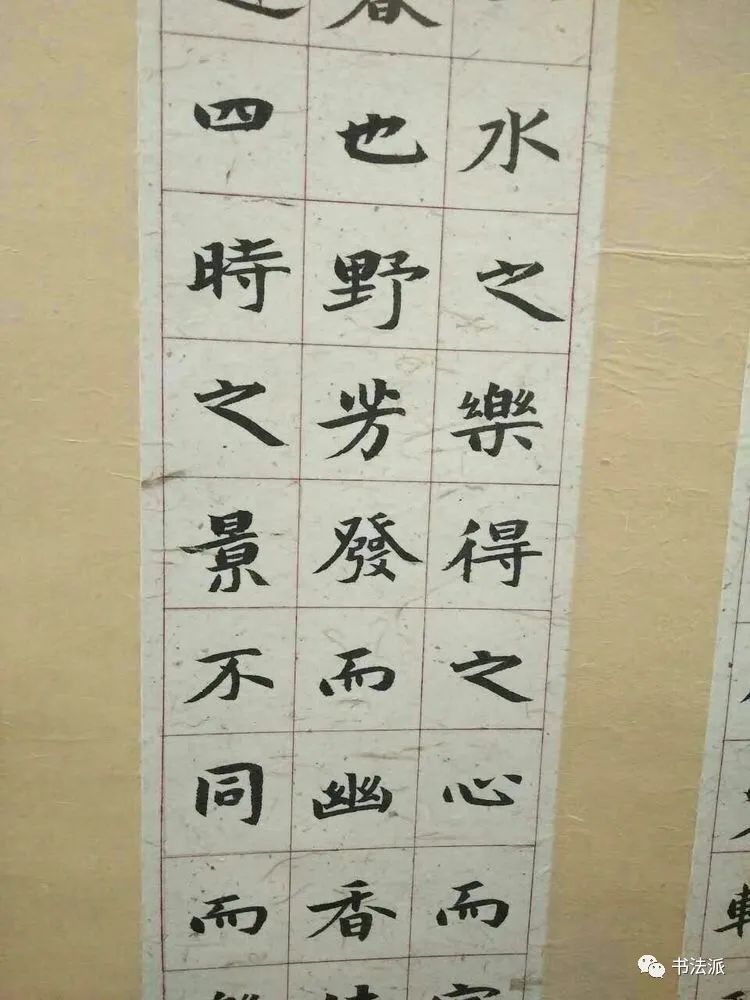 水之樂得之心而
春也野芳發而幽香
四時之景不同而
书法派